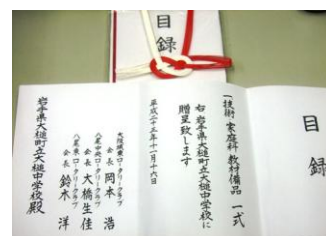 目録
目録
一技術 家庭科 教材備品 一式
右 岩手県大槌町立大槌中学校に
贈呈致します
平成二十三年十一月十六日
大阪城東ロータリークラブ
会長 岡本 浩
八尾中央ロータリークラブ
会長 大橋生佳
八尾東ロータリークラブ
会長 鈴木 洋
岩手県大槌町立大槌中学校殿